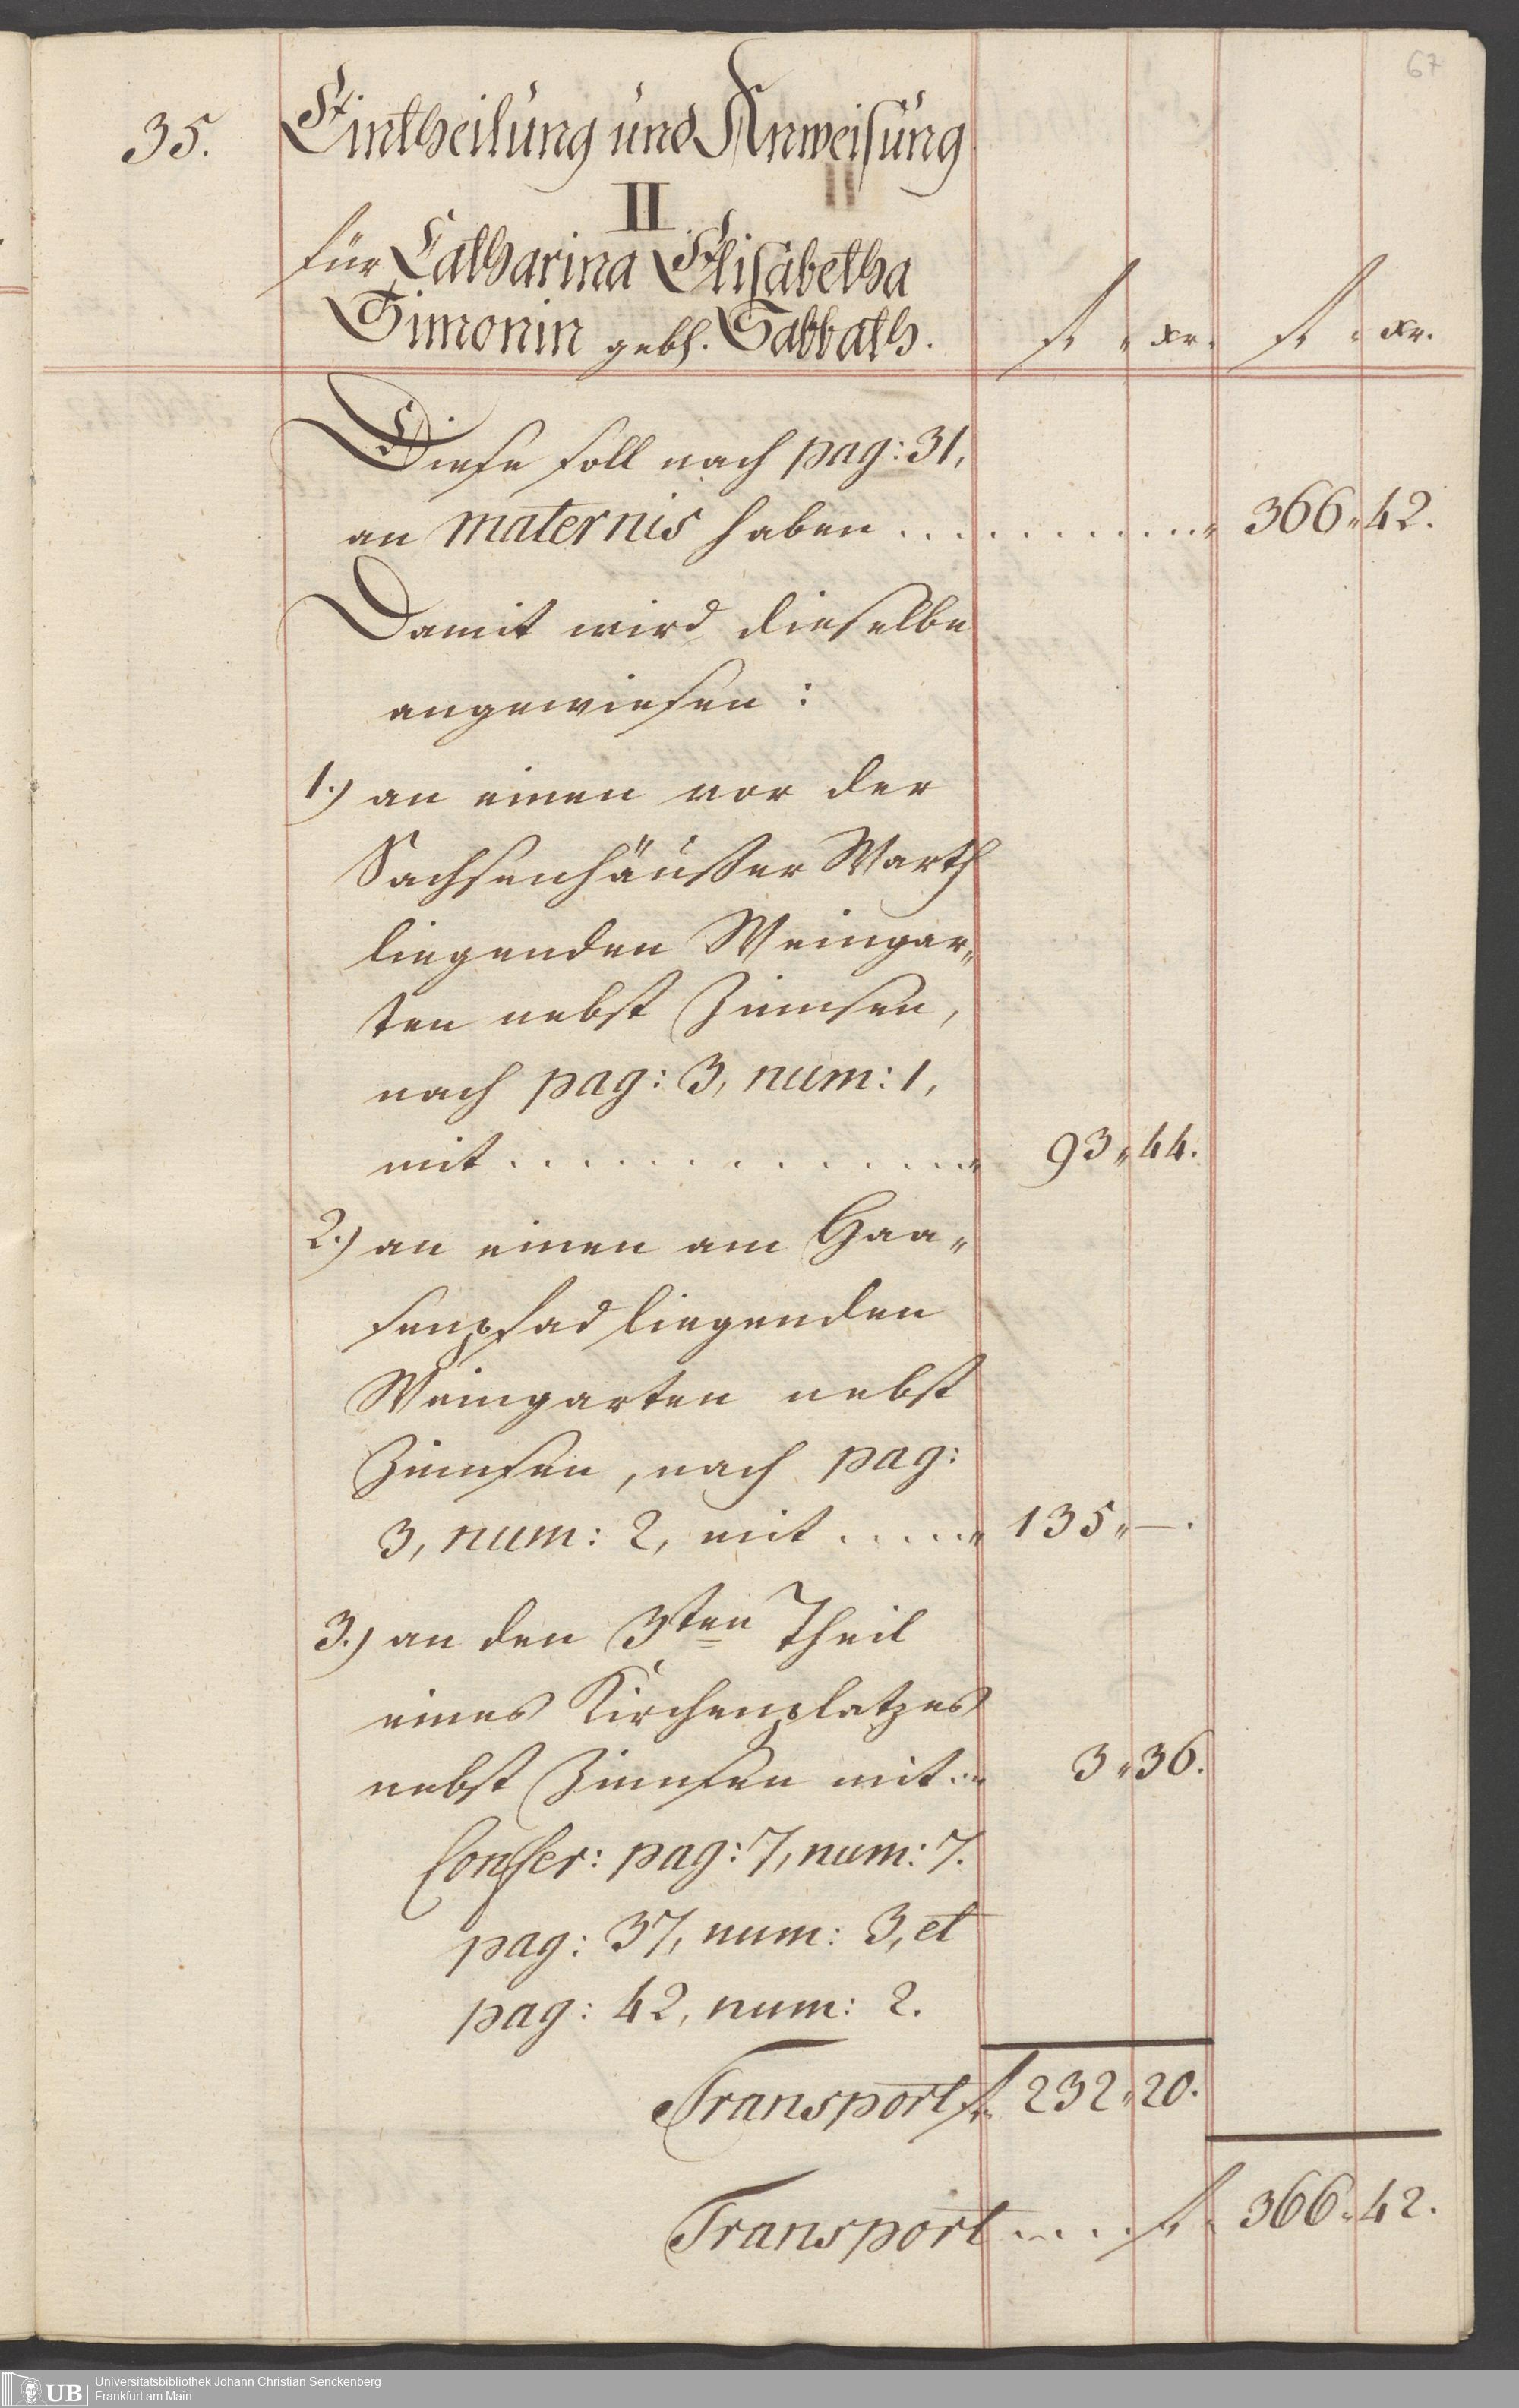 67
35. Eintheilung und Anweisung
II
für Catharina Elisabetha
Simonin gebh. Sabbath. f. " xr. f. " xr.
Diese soll nach pag: 31,
an maternis haben . . . . . . . . . . . . " 366 " 42.
Damit wird dieselbe
angewiesen:
1.) an einen vor der
Sachsenhäußer Warth
liegenden Weingar„
ten nebst Zinnsen,
nach pag: 3, num: 1,
mit . . . . . . . . . . . . . . " 93 " 44.
2.) an einen am Haa„
senpfad liegenden
Weingarten nebst
Zinnsen, nach pag:
3, num: 2, mit . . . . . " 135 " —.
3.) an den 3ten Theil
eines Kirchenplatzes
nebst Zinnsen mit . . " 3 " 36.
Confer: pag: 7, num: 7.
pag: 37, num: 3, et
pag: 42, num: 2.
Transport f. 232 " 20.
Transport . . . . f. 366 " 42.
UB Universitätsbibliothek Johann Christian Senckenberg
Frankfurt am Main